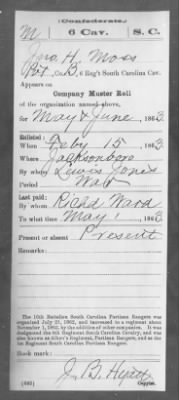 Confederate.
M 6 Cav. S. C.
Jno. H. Moss
Pvt, Co. B, 6 Reg't South Carolina Cav.
Appears on
Company Muster Roll
of the organization named above,
for May & June, 1863
Enlisted:
When Feby 15, 1863
Where Jacksonboro
By whom Lewis Jones
Period War
Last paid:
By whom Richd Ward
To what time May 1, 1863
Present or absent Present
Remarks:
The 16th Battalion South Carolina Partisan Rangers was
organized July 21, 1862, and increased to a regiment about
November 1, 1862, by the addition of other companies. It was
designated the 6th Regiment South Carolina Cavalry, and was
also known as Aiken's Regiment, Partisan Rangers, and as the
1st Regiment South Carolina Partisan Rangers.
Book mark:
(642) Copyist.